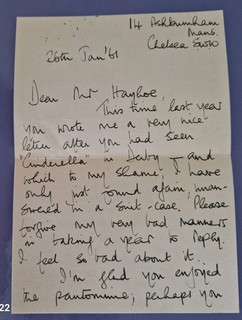 14 Ashburnham
Mans.
Chelsea SW10
26th Jan '61
Dear Mr Hayhoe,
This time last year
you wrote me a very nice
letter after you had seen
"Cinderella" in Derby — and
which to my shame, I have
only just found again, unan-
swered in a suit-case. Please
forgive my very bad manners
in taking a year to reply.
I feel so bad about it..
I'm glad you enjoyed
the pantomime; perhaps you
22